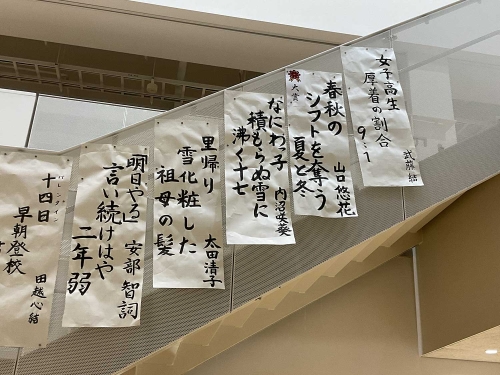 女子高生
厚着の割合
9:1
春秋の
シフトを奪う
夏と冬
山口悠花
大賞
なにわっ子
積もらぬ雪に
沸く十七
里帰り
雪化粧した
祖母の髪
太田清子
「明日やる」
言い続けはや
二年弱
安部智詞
バレンタイン
十四日
早朝登校
田越心結